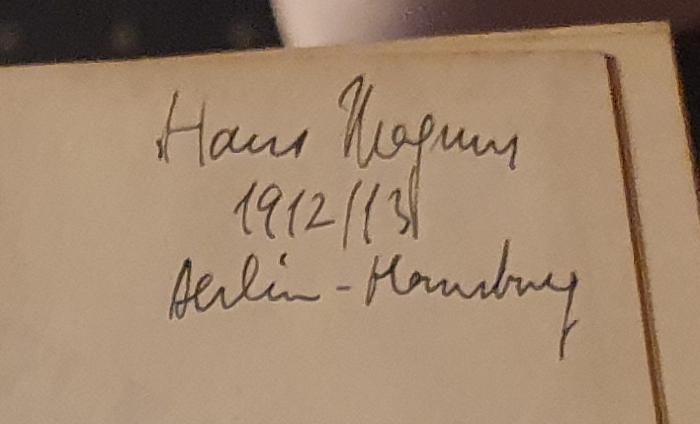 Hans Magnus
1912/13
Berlin-Hamburg